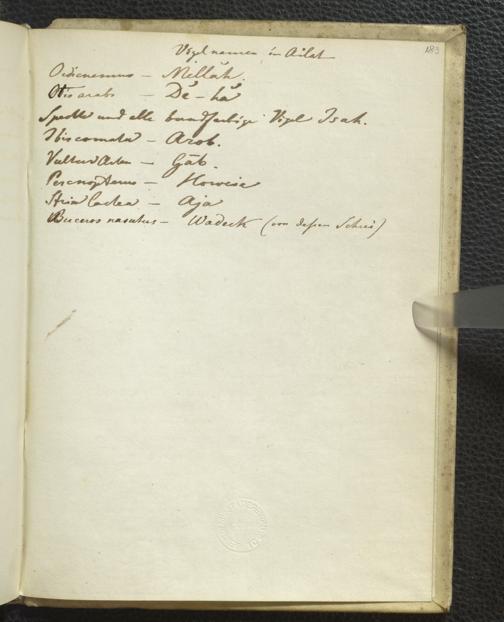 183
Vögelnamen in Ailat
Oidicnemus – Millāh.
Otis arabs – Dĕ-hă
Spechte und alle buntfarbige Vögel Isak.
Ibis comata – Arob.
Vultur – Gāb.
Percnopterus – Howeia
Strix lactea – Aja
Buceros nasutus – Wadeck (von dessen Schrei)